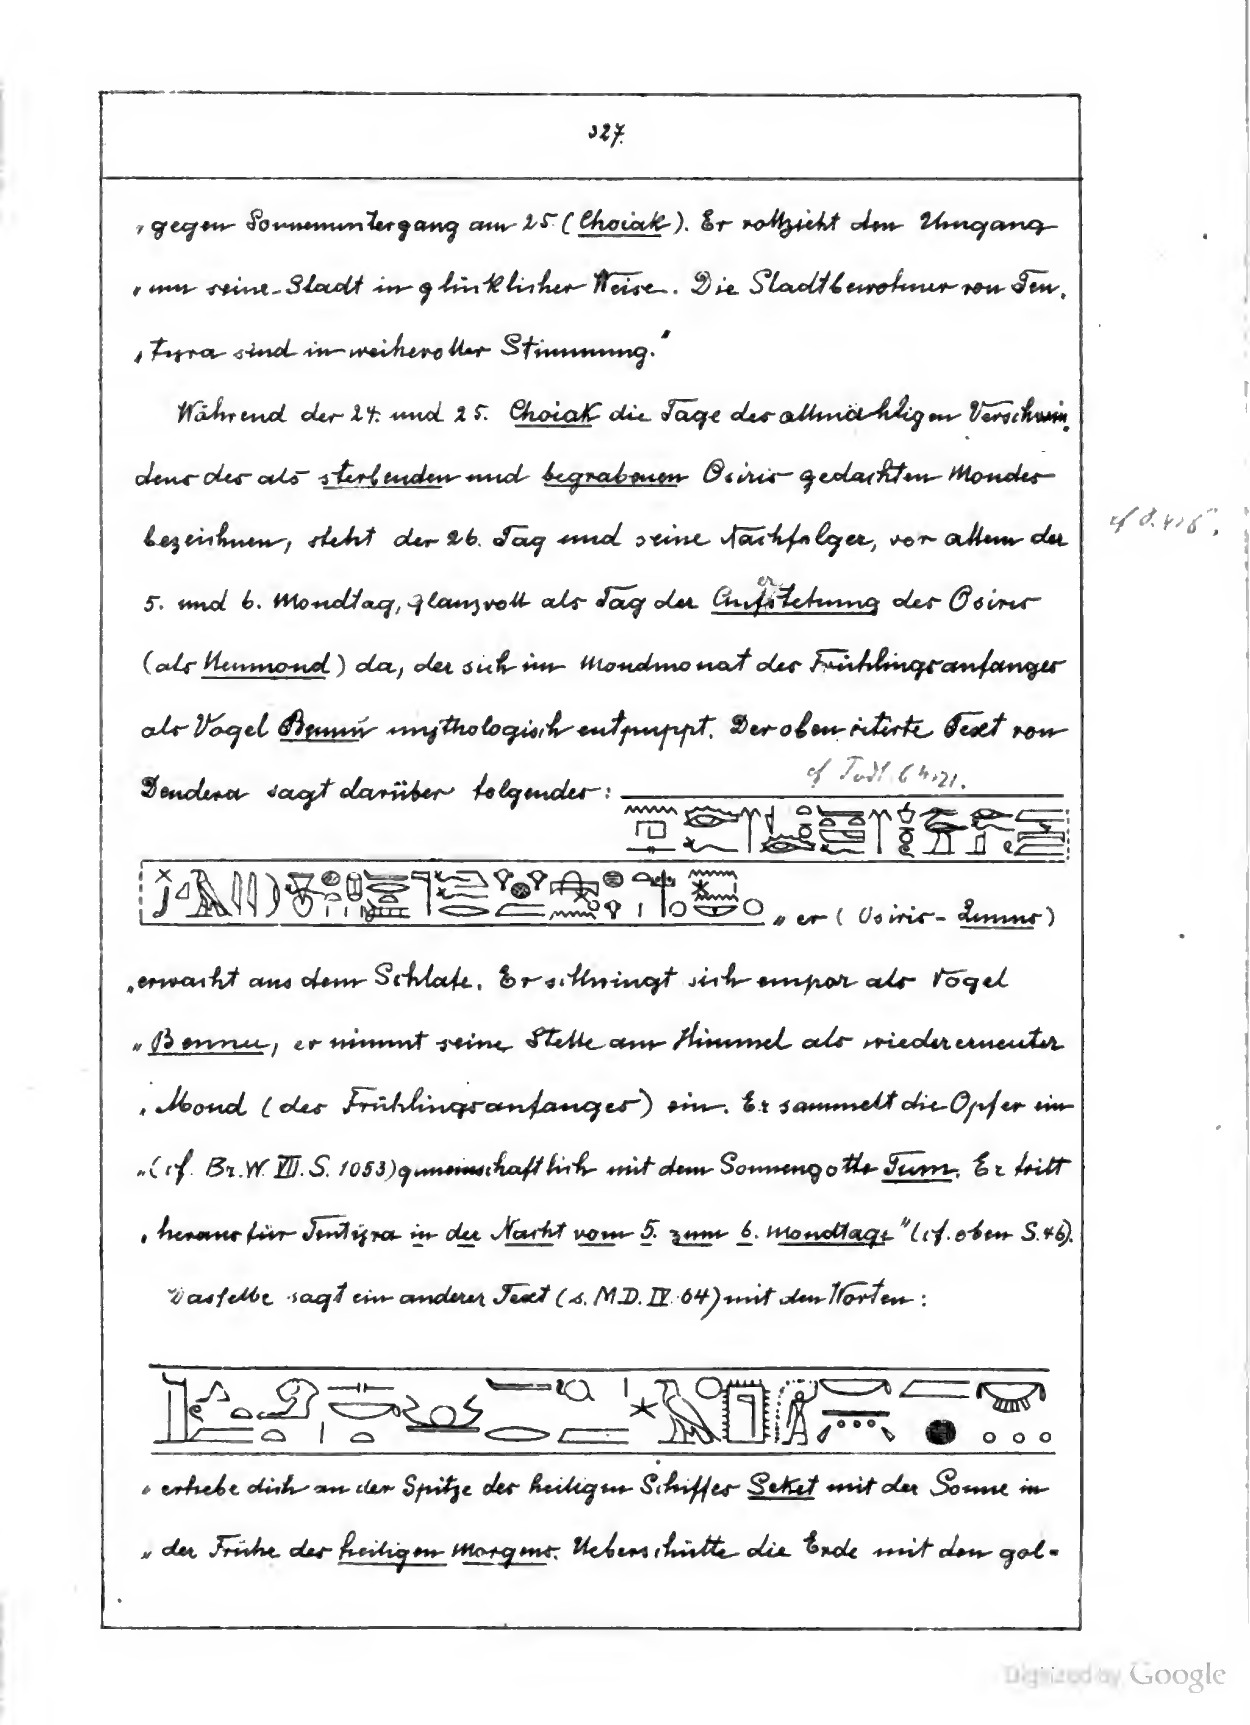 327.
„gegen Sonnenuntergang am 25 (Choiak). Er vollzieht den Umgang
„um seine Stadt in glücklicher Weise. Die Stadtbewohner von Ten,
„tyra sind in weihevoller Stimmung."
Während der 24. und 25. Choiak die Tage des allmähligen Verschwin,
dens des als sterbenden und begrabenen Osiris gedachten Mondes
bezeichnen, steht der 26. Tag und seine Nachfolger, vor allem der
5. und 6. Mondtag, glanzvoll als Tag der Auferstehung des Osiris
(als Neumond) da, der sich im Mondmonat des Frühlingsanfanges
als Vogel Bennu mythologisch entpuppt. Der oben citirte Text von
Dendera sagt darüber folgendes:
„er (Osiris-Lunus)
„erwacht aus dem Schlafe. Er schwingt sich empor als Vogel
„Bennu, er nimmt seine Stelle am Himmel als wiedererneuter
„Mond (des Frühlingsanfanges) ein. Er sammelt die Opfer ein
„(cf. Br. W. VII. S. 1053) gemeinschaftlich mit dem Sonnengotte Tum. Er tritt
„heraus für Tentyra in der Nacht vom 5. zum 6. Mondtage" (cf. oben S. 46).
Dasselbe sagt ein anderer Text (s. M.D. IV. 64) mit den Worten:
„erhebe dich an der Spitze des heiligen Schiffes Seket mit der Sonne in
„der Frühe des heiligen Morgens. Ueberschütte die Erde mit den gol-
Digitized by Google